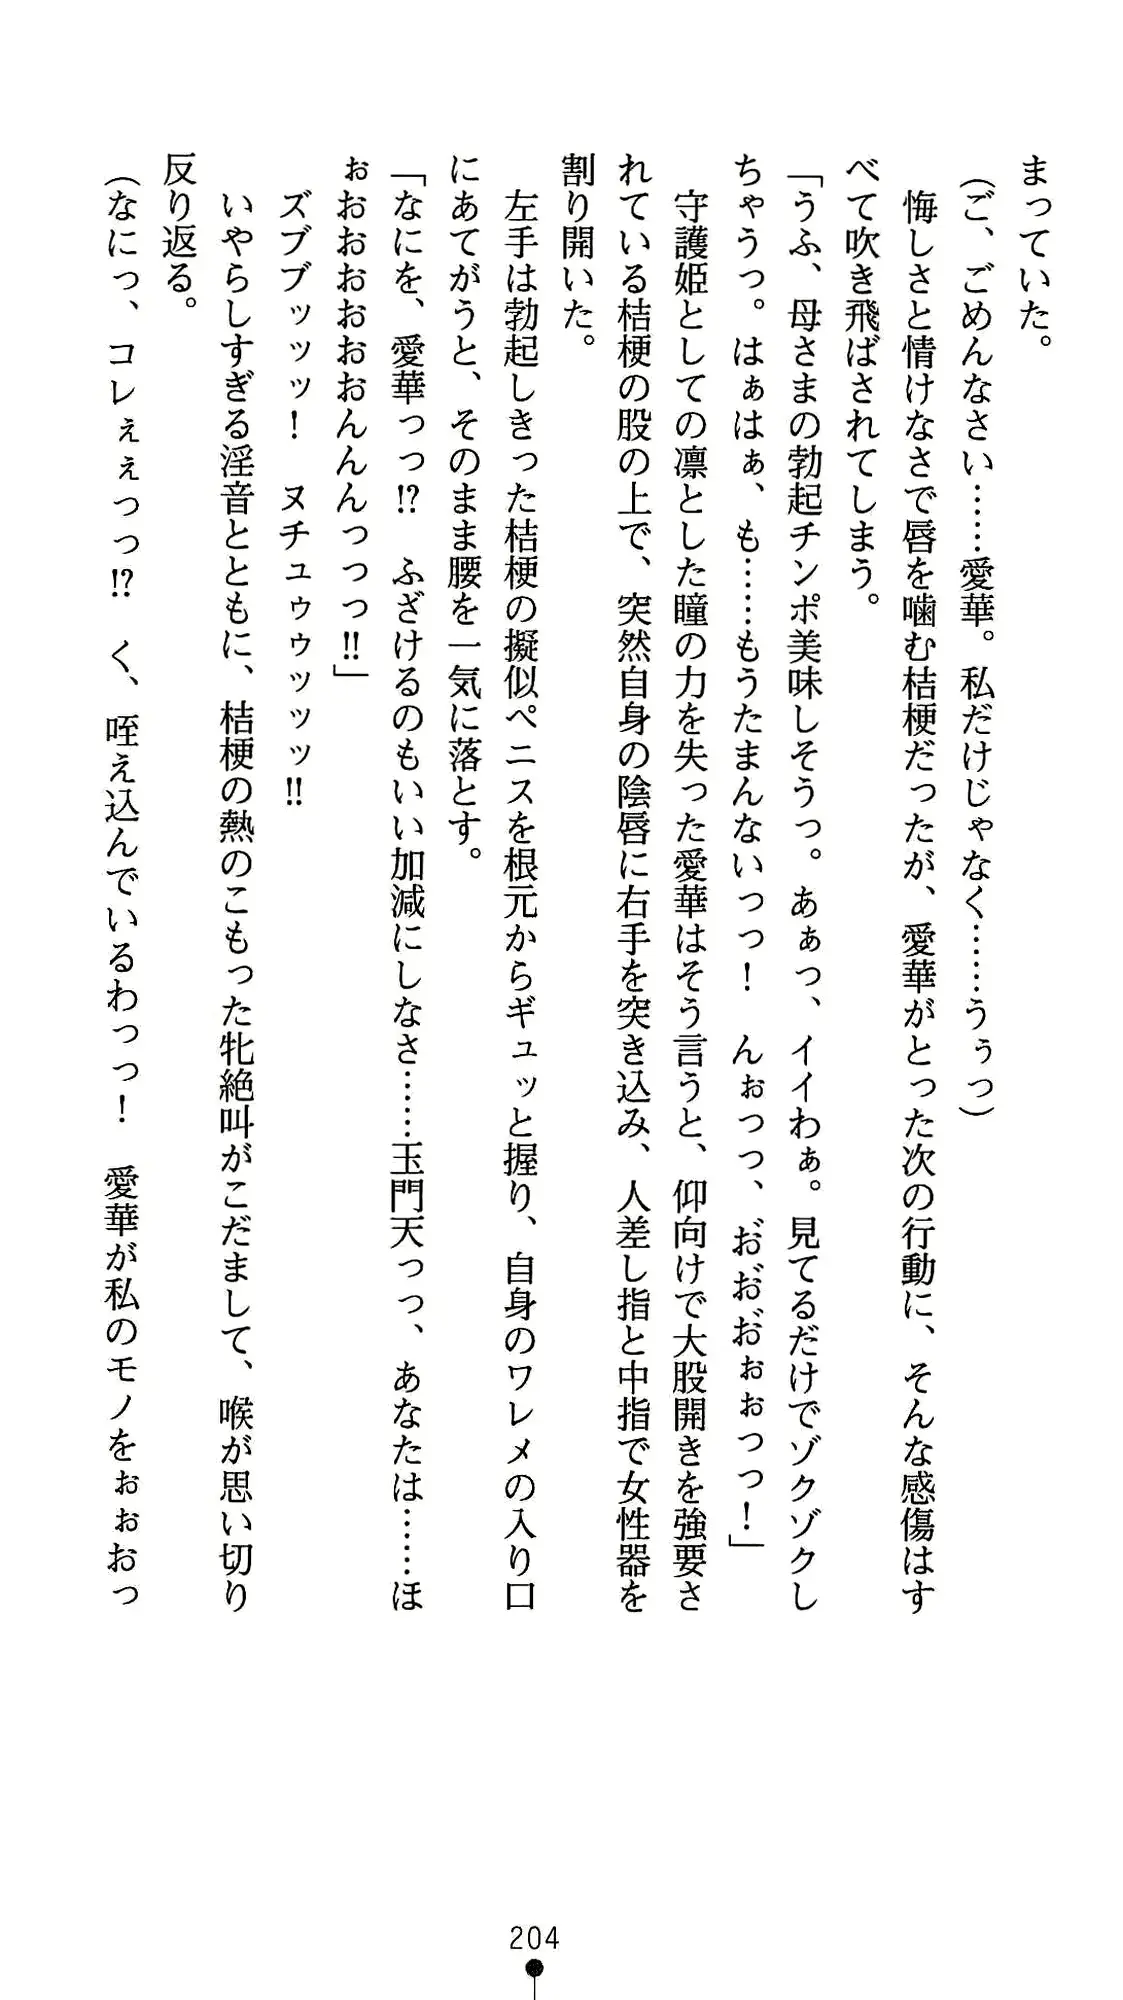 まっていた。
（ご、ごめんなさい……愛華。私だけじゃなく……うぅっ）
悔しさと情けなさで唇を噛む桔梗だったが、愛華がとった次の行動に、そんな感傷はす
べて吹き飛ばされてしまう。
「うふ、母さまの勃起チンポ美味しそうっ。あぁっ、イイわぁ。見てるだけでゾクゾクし
ちゃうっ。はぁはぁ、も……もうたまんないっっ！　んぉっっ、お゛お゛お゛ぉぉっっ！」
守護姫としての凛とした瞳の力を失った愛華はそう言うと、仰向けで大股開きを強要さ
れている桔梗の股の上で、突然自身の陰唇に右手を突き込み、人差し指と中指で女性器を
割り開いた。
左手は勃起しきった桔梗の擬似ペニスを根元からギュッと握り、自身のワレメの入り口
にあてがうと、そのまま腰を一気に落とす。
「なにを、愛華っっ!?　ふざけるのもいい加減にしなさ……玉門天っっ、あなたは……ほ
ぉおおおおおんんんっっっ!!」
ズブブッッッ！　ヌチュゥゥッッッ!!
いやらしすぎる淫音とともに、桔梗の熱のこもった牝絶叫がこだまして、喉が思い切り
反り返る。
（なにっ、コレぇぇっっ!?　く、咥え込んでいるわっっ！　愛華が私のモノをぉぉおっ
204